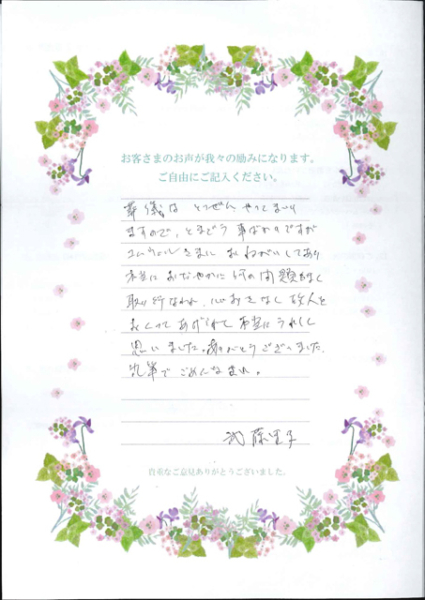 お客さまのお声が我々の励みになります。
ご自由にご記入ください。
葬儀は とつぜん やってまいり
ますので、とまどう 事ばかりですが
さまに おねがいしてあり
本当に おだやかに 何の問題もなく
取り行なわれ、心おきなく 故人を
おくって あげられて 本当に うれしく
思いました。ありがとうございました。
乱筆で ごめんなさい。
武藤
貴重なご意見ありがとうございました。